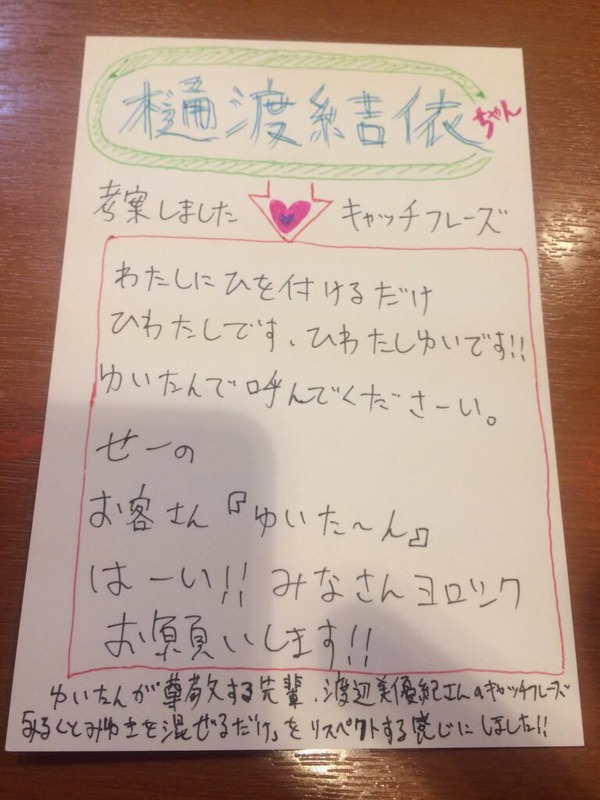 樋渡結依ちゃん
考案しました キャッチフレーズ
わたしにひを付けるだけ
ひわたしです、ひわたしゆいです!!
ゆいたんで呼んでくださーい。
せーの
お客さん『ゆいた~ん』
はーい!! みなさんヨロシク
お願いします!!
ゆいたんが尊敬する先輩、渡辺美優紀さんのキャッチフレーズ
「みるくとみゆきを混ぜるだけ」をリスペクトする感じにしました!!